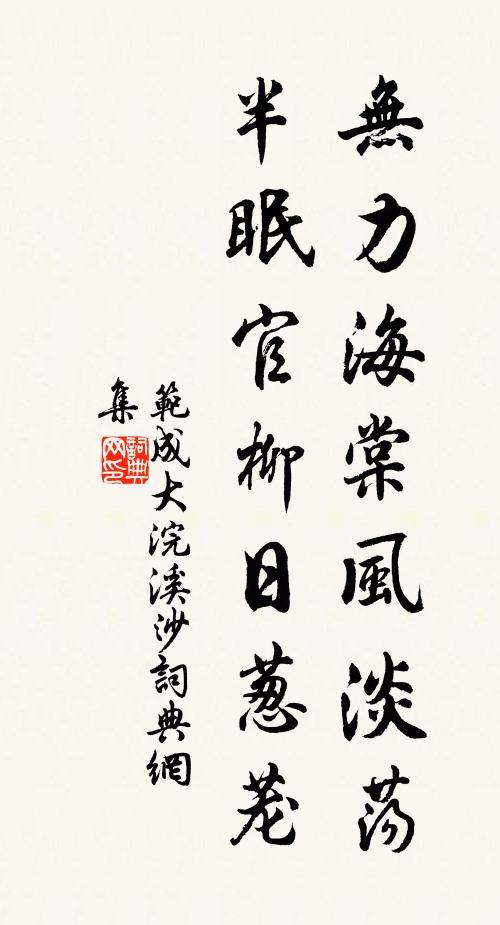 無力海棠風淡蕩
半眠官柳日蔥蘢
範成大浣溪沙詞典網
集
詞典
网印